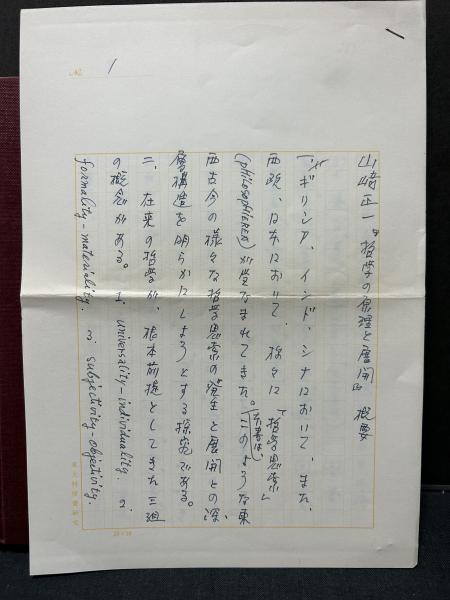 No. 1
山崎正一『哲学の原理と展開』概要
一、ギリシア、インド、シナにおいて、また、
西欧、日本において、様々に「哲学思索」
(philosophieren)が営なまれてきた。本書は、このような東
西古今の様々な哲学思索の発生と展開との深
層構造を明らかにしようとする探究である。
二、在来の哲学が、根本前提としてきた三廻
の概念がある。1. universality-individuality. 2.
formality-materiality. 3. subjectivity-objectivity.
20×20